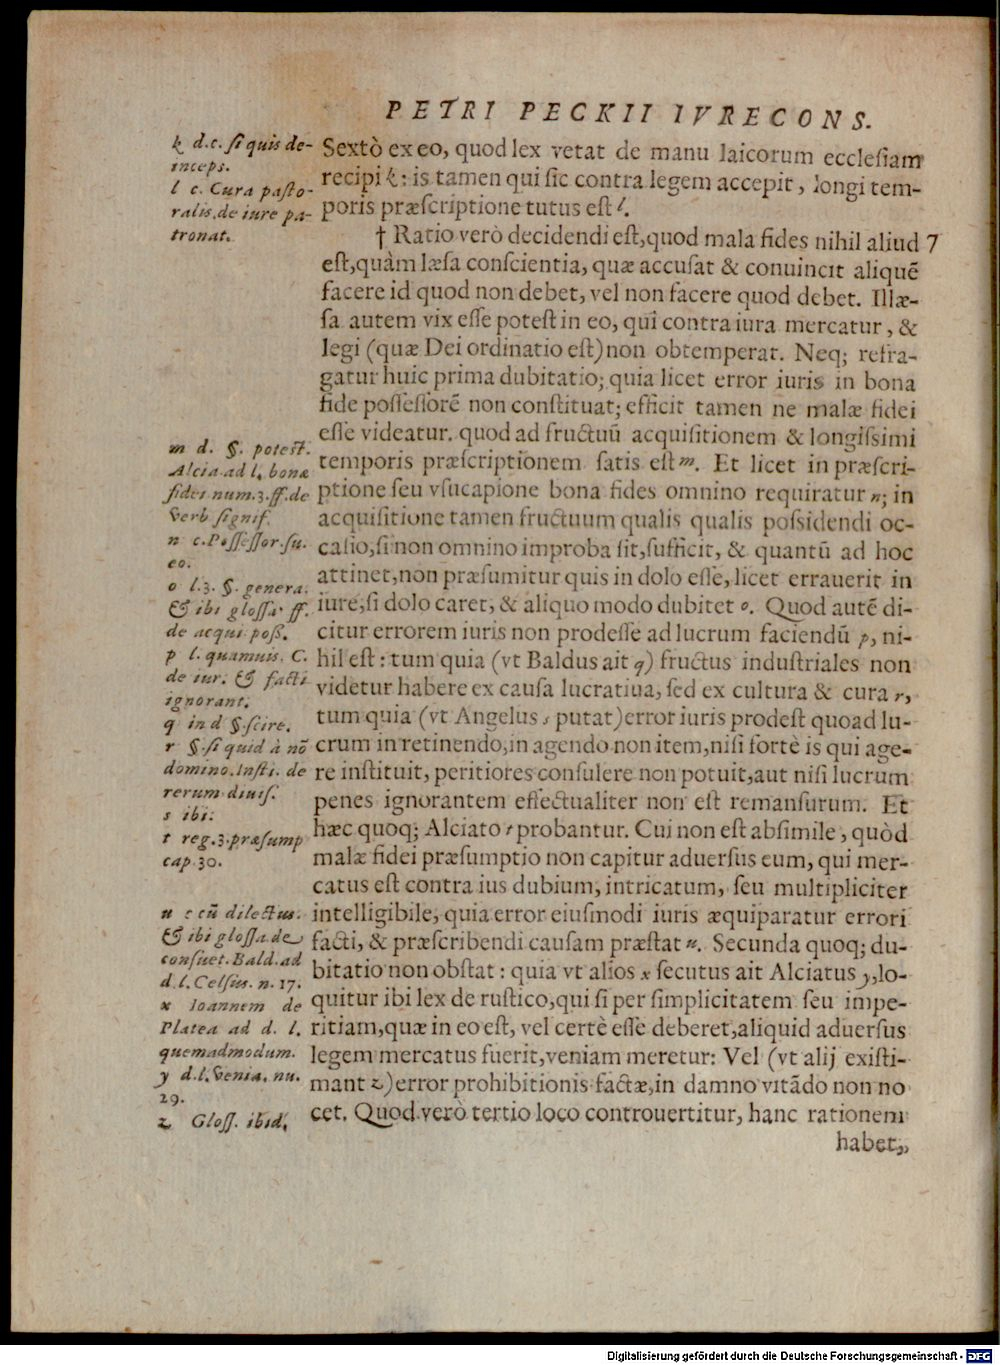 PETRI PECKII IVRECONS.
Sextò ex eo, quod lex vetat de manu laicorum ecclesiam
recipi k: is tamen qui sic contra legem accepit, longi tem-
poris præscriptione tutus est l.
† Ratio verò decidendi est, quod mala fides nihil aliud 7
est, quàm læsa conscientia, quæ accusat & conuincit aliquē
facere id quod non debet, vel non facere quod debet. Illæ-
sa autem vix esse potest in eo, qui contra iura mercatur, &
legi (quæ Dei ordinatio est) non obtemperat. Neq; refra-
gatur huic prima dubitatio; quia licet error iuris in bona
fide possessorē non constituat; efficit tamen ne malæ fidei
esse videatur. quod ad fructuū acquisitionem & longissimi
temporis præscriptionem satis est m. Et licet in præscri-
ptione seu vsucapione bona fides omnino requiratur n; in
acquisitione tamen fructuum qualis qualis possidendi oc-
casio, si non omnino improba sit, sufficit, & quantū ad hoc
attinet, non præsumitur quis in dolo esse, licet errauerit in
iure, si dolo caret, & aliquo modo dubitet o. Quod autē di-
citur errorem iuris non prodesse ad lucrum faciendū p, ni-
hil est: tum quia (vt Baldus ait q) fructus industriales non
videtur habere ex causa lucratiua, sed ex cultura & cura r,
tum quia (vt Angelus s putat) error iuris prodest quoad lu-
crum in retinendo, in agendo non item, nisi fortè is qui age-
re instituit, peritiores consulere non potuit, aut nisi lucrum
penes ignorantem effectualiter non est remansurum. Et
hæc quoq; Alciato t probantur. Cui non est absimile, quòd
malæ fidei præsumptio non capitur aduersus eum, qui mer-
catus est contra ius dubium, intricatum, seu multipliciter
intelligibile, quia error eiusmodi iuris æquiparatur errori
facti, & præscribendi causam præstat u. Secunda quoq; du-
bitatio non obstat: quia vt alios x secutus ait Alciatus y, lo-
quitur ibi lex de rustico, qui si per simplicitatem seu impe-
ritiam, quæ in eo est, vel certè esse deberet, aliquid aduersus
legem mercatus fuerit, veniam meretur: Vel (vt alij existi-
mant z) error prohibitionis factæ, in damno vitādo non no
cet. Quod verò tertio loco controuertitur, hanc rationem
habet,
k d.c. si quis de-
inceps.
l c. Cura pasto-
ralis, de iure pa-
tronat.
m d. §. potest.
Alcia. ad l. bonæ
fidei num. 3. ff. de
verb signif.
n c. Possessor. su.
eo.
o l. 3. §. genera.
& ibi glossa. ff.
de acqui. poss.
p l. quamuis. C.
de iur. & facti
ignorant.
q in d §. scire.
r §. si quid à nō
domino. Insti. de
rerum diuis.
s ibi.
t reg. 3. præsump
cap. 30.
u c cū dilectus.
& ibi glossa. de
consuet. Bald. ad
d. l. Celsus. n. 17.
x Ioannem de
Platea ad d. l.
quemadmodum.
y d. l. venia. nu.
29.
z Gloss. ibid.
Digitalisierung gefördert durch die Deutsche Forschungsgemeinschaft - DFG